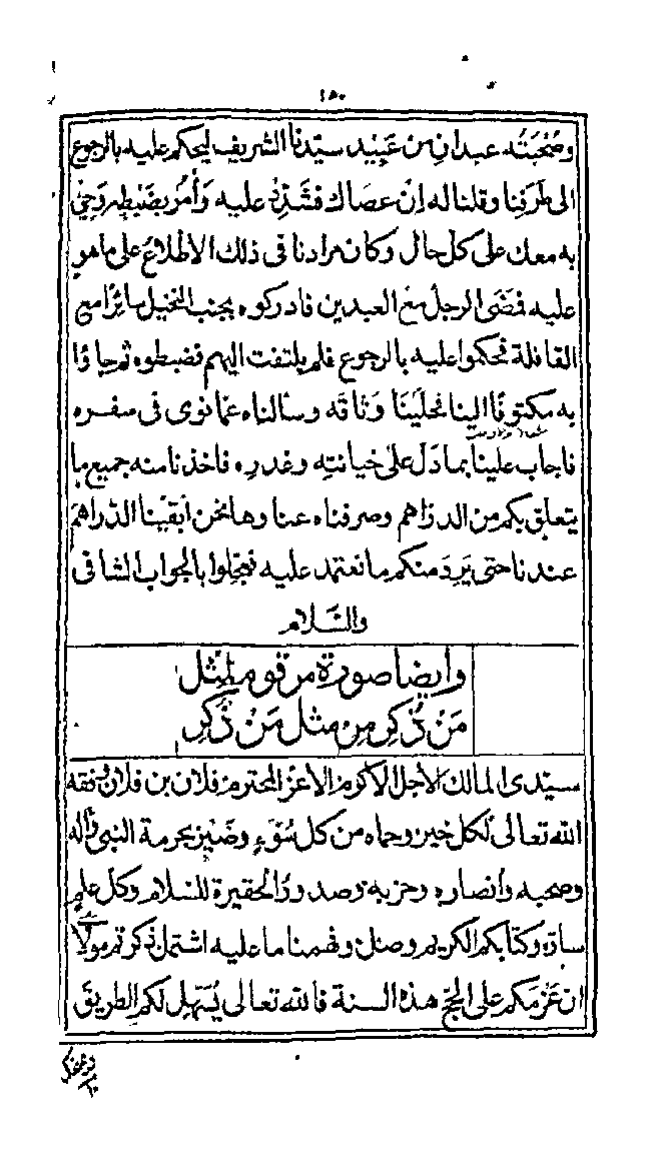 ١٥٠
وصُحْبَتُه عبدانِ من عَبِيْد سيّدنا الشريف ليحكم عليه بالرجوع
الى طَرَفِنا وقلنا له اِنْ عصَاك فشَدِّدْ عليه وَأْمُر بضَبْطِه وَجِئ
به معك على كل حال وكان مرادنا فى ذلك الاطلاع على ما هو
عليه فمَضَى الرجل مع العبدين فادركوه بجنب النخيل سائرًا مع
القافلة فحكموا عليه بالرجوع فلم يلتفت اليهم فضبطوه ثم جاؤا
به مكتوفًا الينا فحلَلْنا وَثاقَه وسألناه عمّا نوى فى سفره
فاجاب علينا بما دَلّ على خيانتِه وغدرِه فاخذنا منه جميع ما
يتعلق بكم من الدراهم وصرفناه عنا وها نحن ابقَيْنا الدّراهم
عندنا حتى يَرِدَ منكم ما نعتمد عليه فعجّلوا بالجواب الشافى
والسَّلام
وايضا صورة مرقوم لمثل
مَنْ ذُكِرَ مِن مثل مَنْ ذُكِرَ
سيّدى المالك الاجل الاكرم الاعز المحترم فلان بن فلان وفقه
الله تعالى لكل خير وحماه من كل سُوْءٍ وضَيْرٍ بحرمة النبى وآله
وصحبه وانصاره وحزبه وصدورُ الحقيرة للسلام وكل علمٍ
سارّ وكتابكم الكريم وصل وفهمنا ما عليه اشتمل ذكرتم مولاَنا
ان عَزْمَكم على الحجّ هذه السنة فالله تعالى يُسَهّل لكم الطريقَ